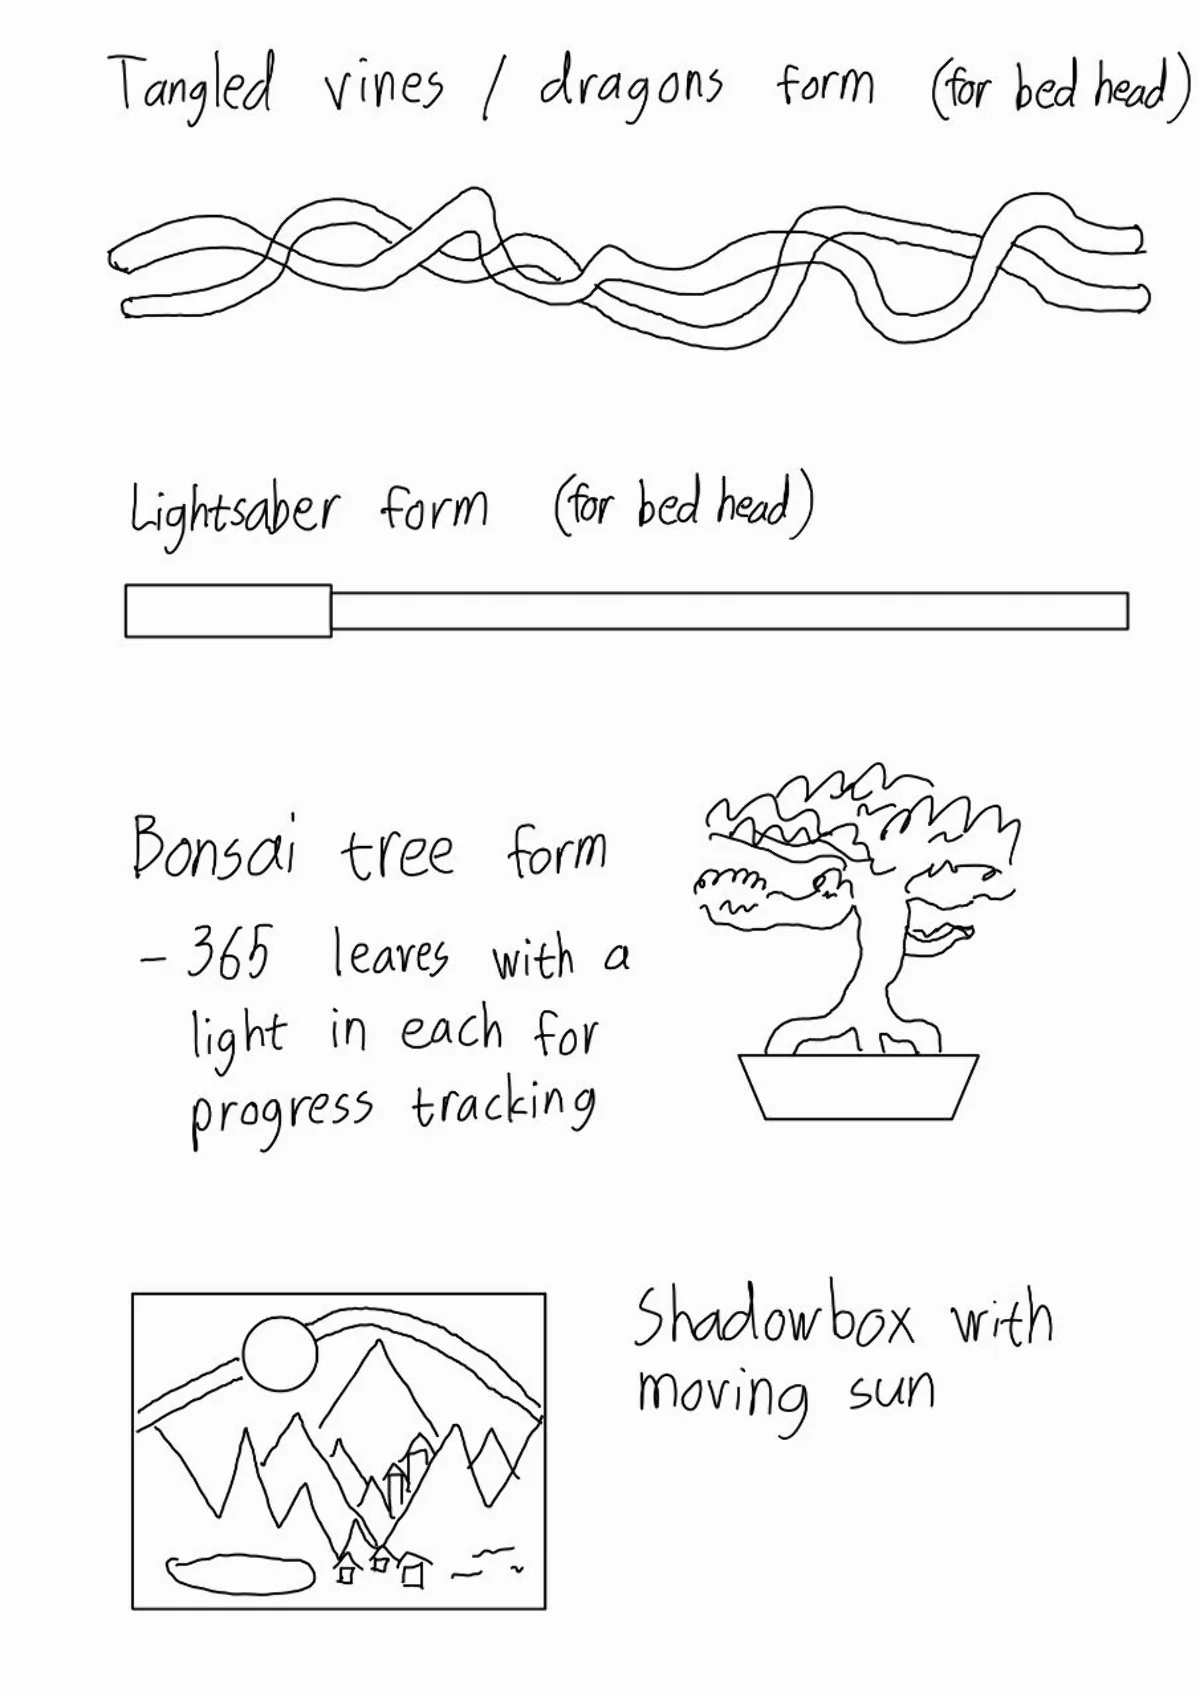 Tangled vines / dragons form (for bed head)
Lightsaber form (for bed head)
Bonsai tree form
- 365 leaves with a
light in each for
progress tracking
Shadowbox with
moving sun